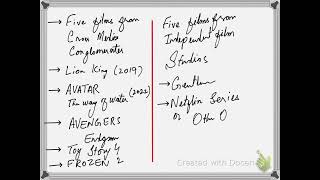 → Five films from
Cross Media
Conglomerates
→ Lion King (2019)
→ AVATAR
The way of water (2022)
→ AVENGERS
Endgame
→ Toy Story 4
→ FROZEN 2
Five films from
Independent film
Studios
→
→ Netflix Series
or Othe O
Created with Doceri